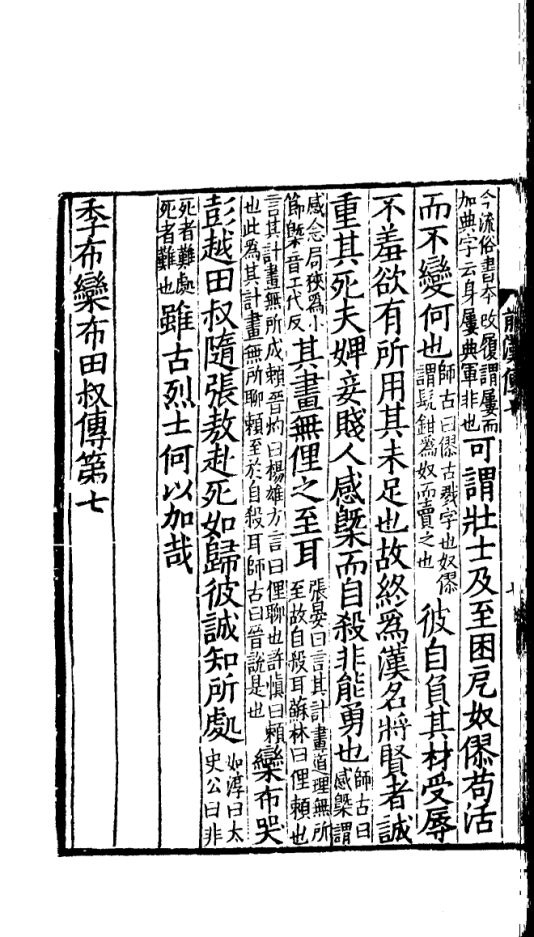 今流俗書本改履謂屢而
加典字云身屢典軍非也
可謂壯士及至困戹奴僇苟活
而不變何也
師古曰僇古戮字也奴僇
謂髡鉗爲奴而賣之也
彼自負其材受辱
不羞欲有所用其未足也故終爲漢名將賢者誠
重其死夫婢妾賤人感槩而自殺非能勇也
師古曰
感槩謂
感念局狹爲小
節槩音工代反
其畫無俚之至耳
張晏曰言其計畫道理無所
至故自殺耳蘇林曰俚賴也
言其計畫無所成賴晉灼曰楊雄方言曰俚聊也許慎曰賴
也此爲其計畫無所聊賴至於自殺耳師古曰晉說是也
欒布哭
彭越田叔隨張敖赴死如歸彼誠知所處
如淳曰太
史公曰非
死者難處
死者難也
雖古烈士何以加哉
季布欒布田叔傳第七